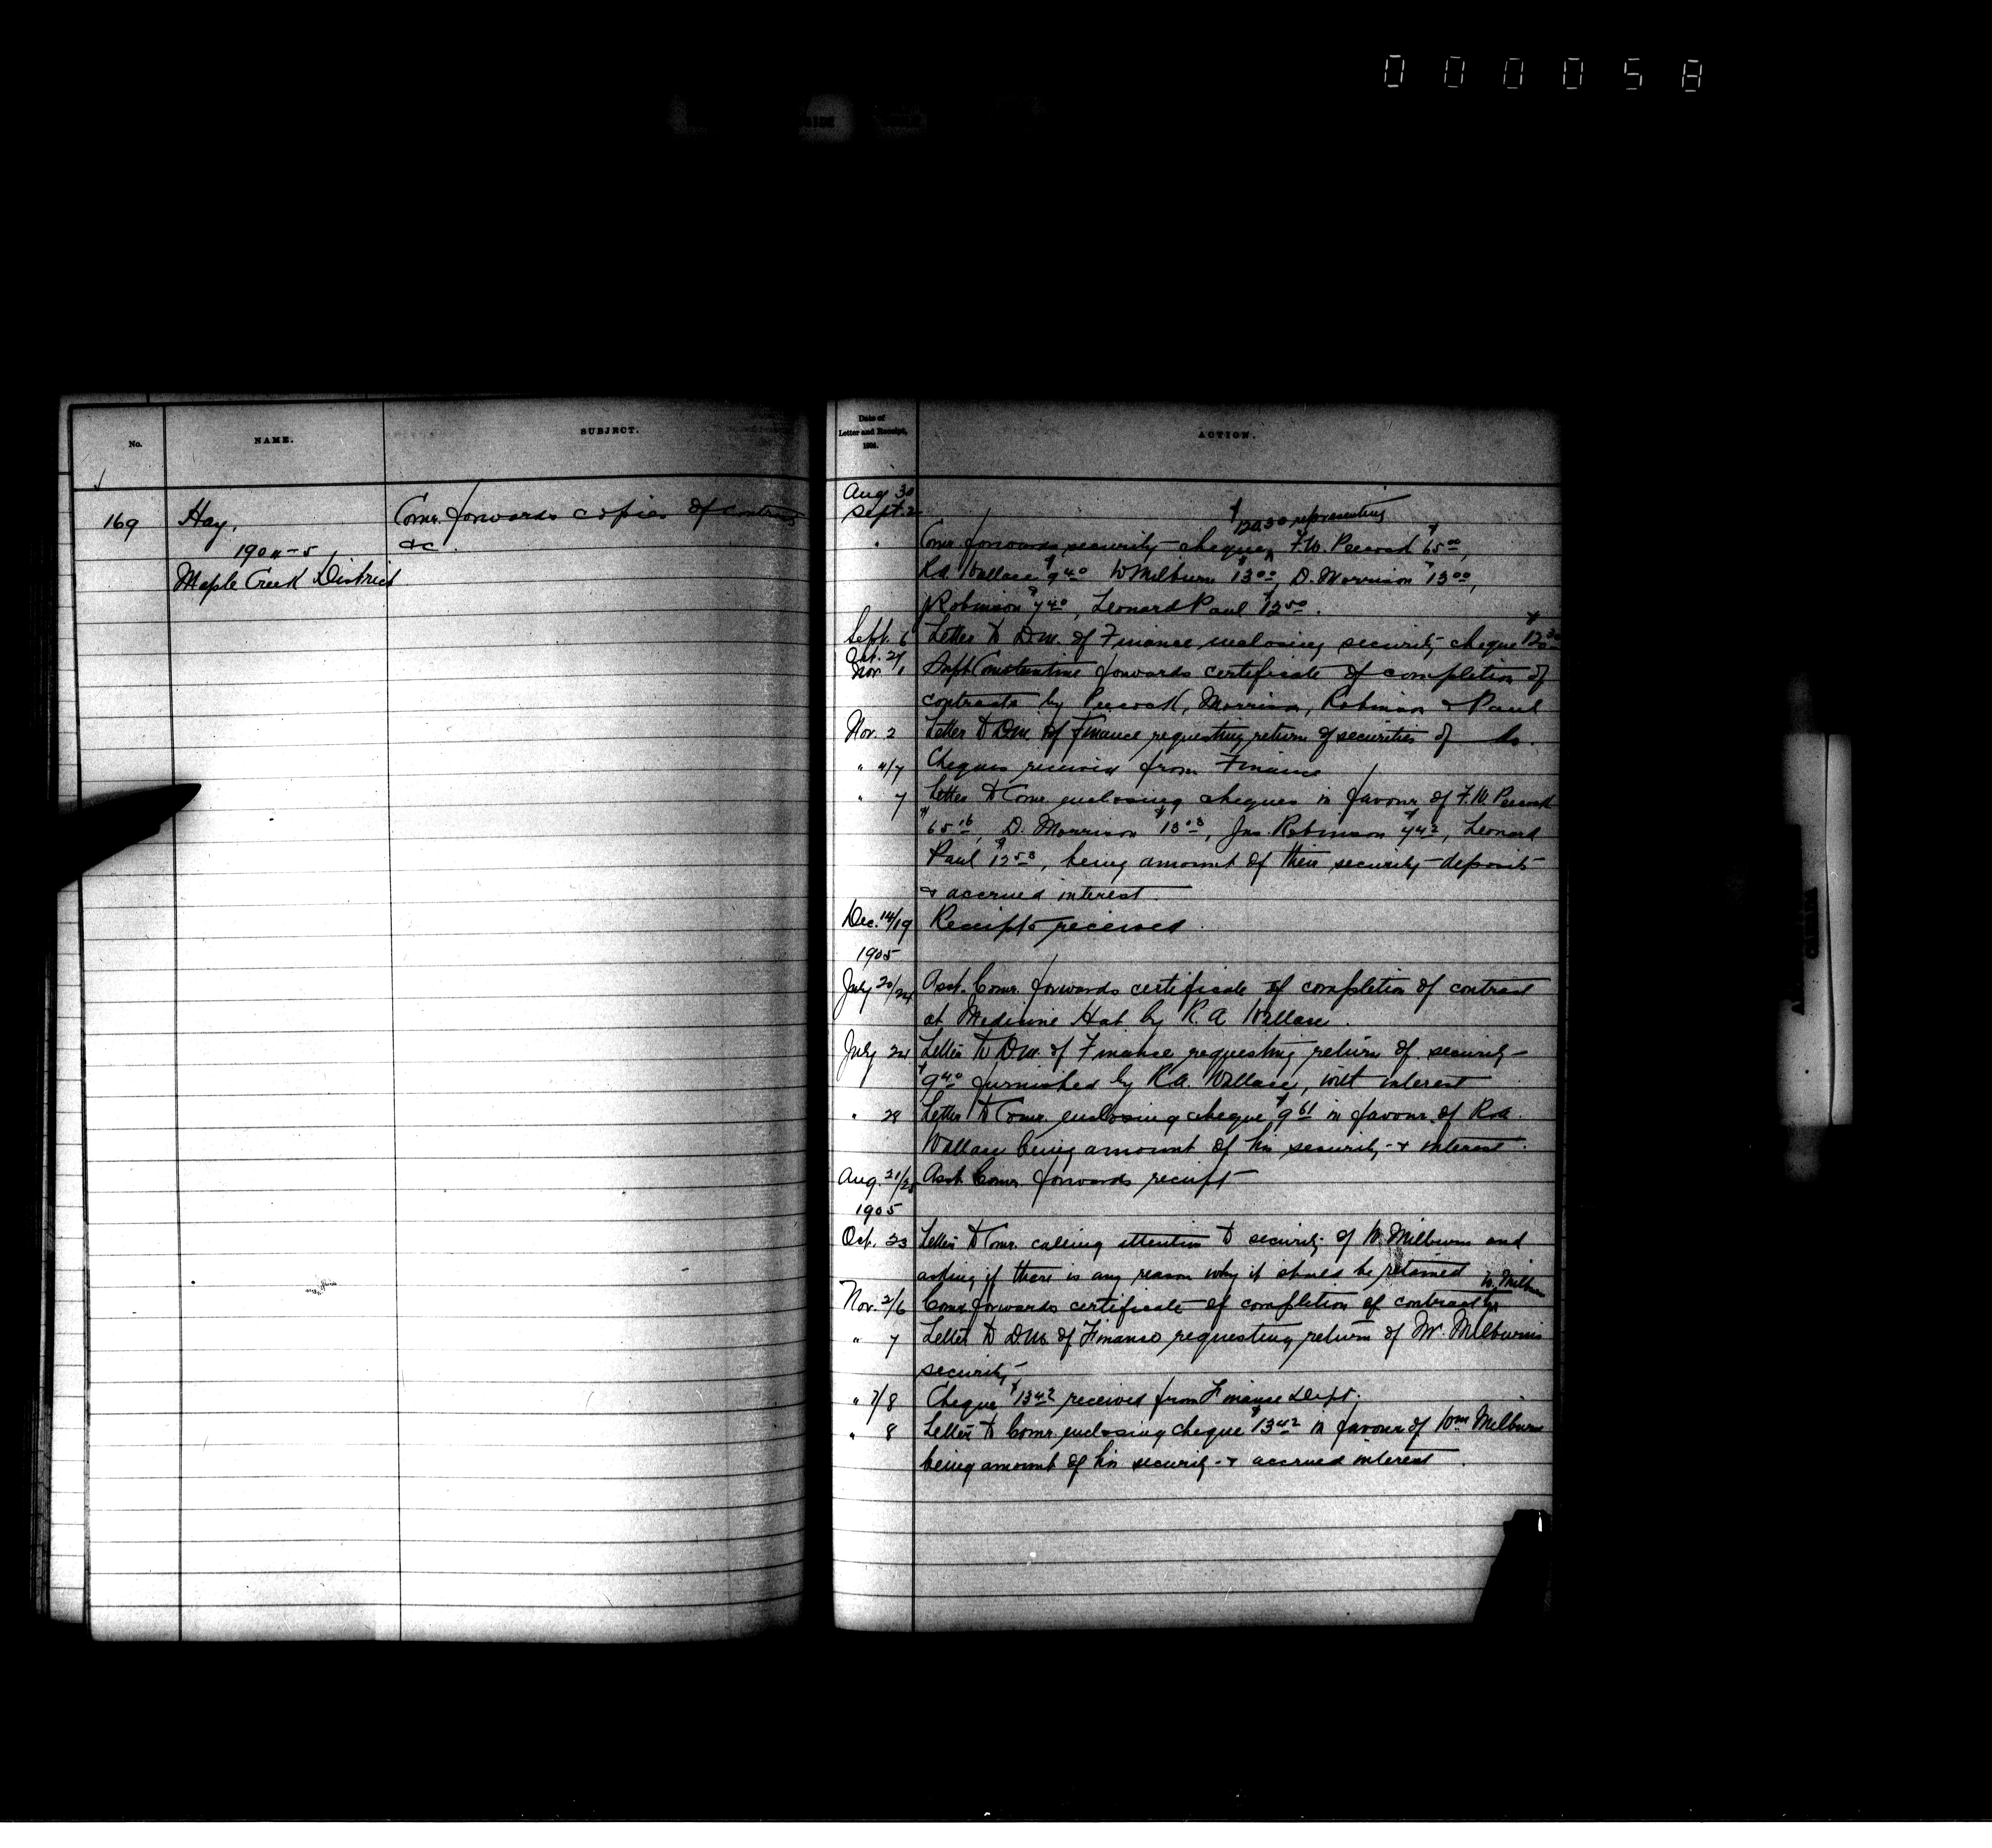 000058
No.
NAME.
SUBJECT.
Date of
Letter and Receipt,
1904.
ACTION.
169
Hay,
1904-5
Maple Creek District
Comr. forwards copies of contracts
&c.
Aug 30
Sept. 2
$120.30 representing
" Comr. forwards security cheque, F.W. Peecock $65.00,
R.A. Wallace $9.40 W Milburn $13.00, D. Morrison $13.00,
J Robinson $7.40, Leonard Paul $12.50.
Sept. 6 Letter to D.M. of Finance enclosing security cheque
Oct. 27
Nov. 1 Supt Constantine forwards certificate of completion of
contracts by Peecock, Morrison, Robinson & Paul
Nov. 2 Letter to D.M. of Finance requesting return of securities of do.
" 4/7 Cheques received from Finance
" 7 Letter to Comr. enclosing cheques in favour of F.W. Peecock
$65.16, D. Morrison $13.03, Jas. Robinson $7.42, Leonard
Paul $12.53, being amount of their security deposits
& accrued interest.
Dec. 14/19 Receipts received.
1905
July 20/24 Asst. Comr. forwards certificate of completion of contract
at Medicine Hat by R.A. Wallace.
July 24 Letter to D.M. of Finance requesting return of security
$9.40 furnished by R.A. Wallace, with interest
" 28 Letter to Comr. enclosing cheque $9.61 in favour of R.A.
Wallace being amount of his security & interest.
Aug. 21/28 Asst. Comr. forwards receipt
1905
Oct. 23 Letter to Comr. calling attention to security of W. Milburn and
asking if there is any reason why it should be retained
W. Milburn
Nov. 2/6 Comr. forwards certificate of completion of contract by
" 7 Letter to D.M. of Finance requesting return of Mr. Milburn's
security
" 7/8 Cheque $13.42 received from Finance Dept.
" 8 Letter to Comr. enclosing cheque $13.42 in favour of Wm Milburn
being amount of his security & accrued interest.